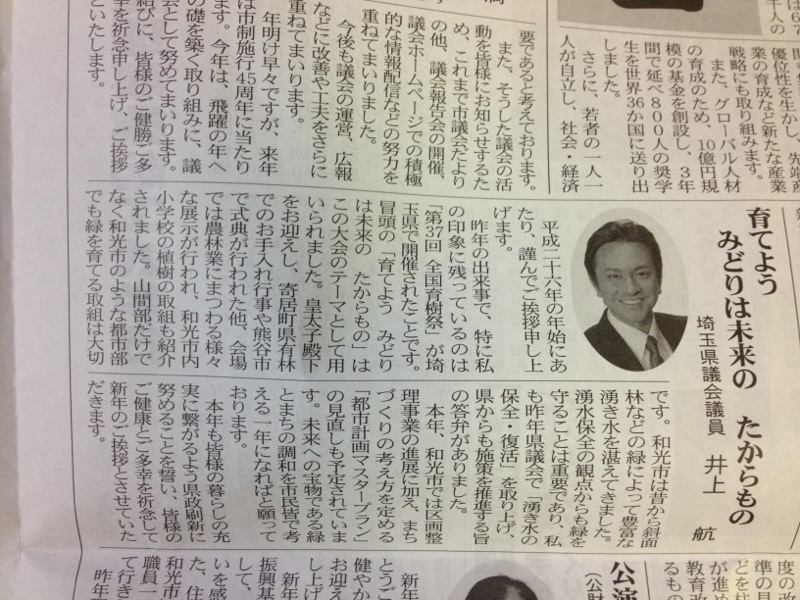 千人の
は67
開も
優位性を生かし、先端産
業の育成など新たな産業
戦略にも取り組みます。
また、グローバル人材
の育成のため、10億円規
模の基金を創設し、3年
間で延べ800人の奨学
生を世界36か国に送り出
しました。
さらに、若者の一人一
人が自立し、社会・経済
要であると考えております。
また、そうした議会の活
動を皆様にお知らせするた
め、これまで市議会だより
の他、議会報告会の開催、
議会ホームページでの積極
的な情報配信などの努力を
重ねてまいりました。
今後も議会の運営、広報
などに改善や工夫をさらに
重ねてまいります。
年明け早々ですが、来年
は市制施行45周年に当たり
ます。今年は、飛躍の年へ
の礎を築く取り組みに、議
会として努めてまいります。
結びに、皆様のご健勝ご多
幸を祈念申し上げ、ご挨拶
といたします。
育てよう
みどりは未来の たからもの
埼玉県議会議員 井上 航
平成二十六年の年始にあ
たり、謹んでご挨拶申し上
げます。
昨年の出来事で、特に私
の印象に残っているのは
「第37回 全国育樹祭」が埼
玉県で開催されたことです。
冒頭の「育てよう みどり
は未来の たからもの」は
この大会のテーマとして用
いられました。皇太子殿下
をお迎えし、寄居町県有林
でのお手入れ行事や熊谷市
で式典が行われた他、会場
では農林業にまつわる様々
な展示が行われ、和光市内
小学校の植樹の取組も紹介
されました。山間部だけで
なく和光市のような都市部
でも緑を育てる取組は大切
です。和光市は昔から斜面
林などの緑によって豊富な
湧き水を湛えてきました。
湧水保全の観点からも緑を
守ることは重要であり、私
も昨年県議会で「湧き水の
保全・復活」を取り上げ、
県からも施策を推進する旨
の答弁がありました。
本年、和光市では区画整
理事業の進展に加え、まち
づくりの考え方を定める
「都市計画マスタープラン」
の見直しも予定されていま
す。未来への宝物である緑
とまちの調和を市民皆で考
える一年になればと願って
おります。
本年も皆様の暮らしの充
実に繋がるよう県政刷新に
努めることを誓い、皆様の
ご健康とご多幸を祈念して
新年のご挨拶とさせていた
だきます。
度の改
準の見
どを柱
が進め
教育改
るもの
公演
(公財
新年
とうご
お迎え
し上げ
健やか
新年
振興基
して、
いを感
た、住
和光市
職員一
て行き
昨年